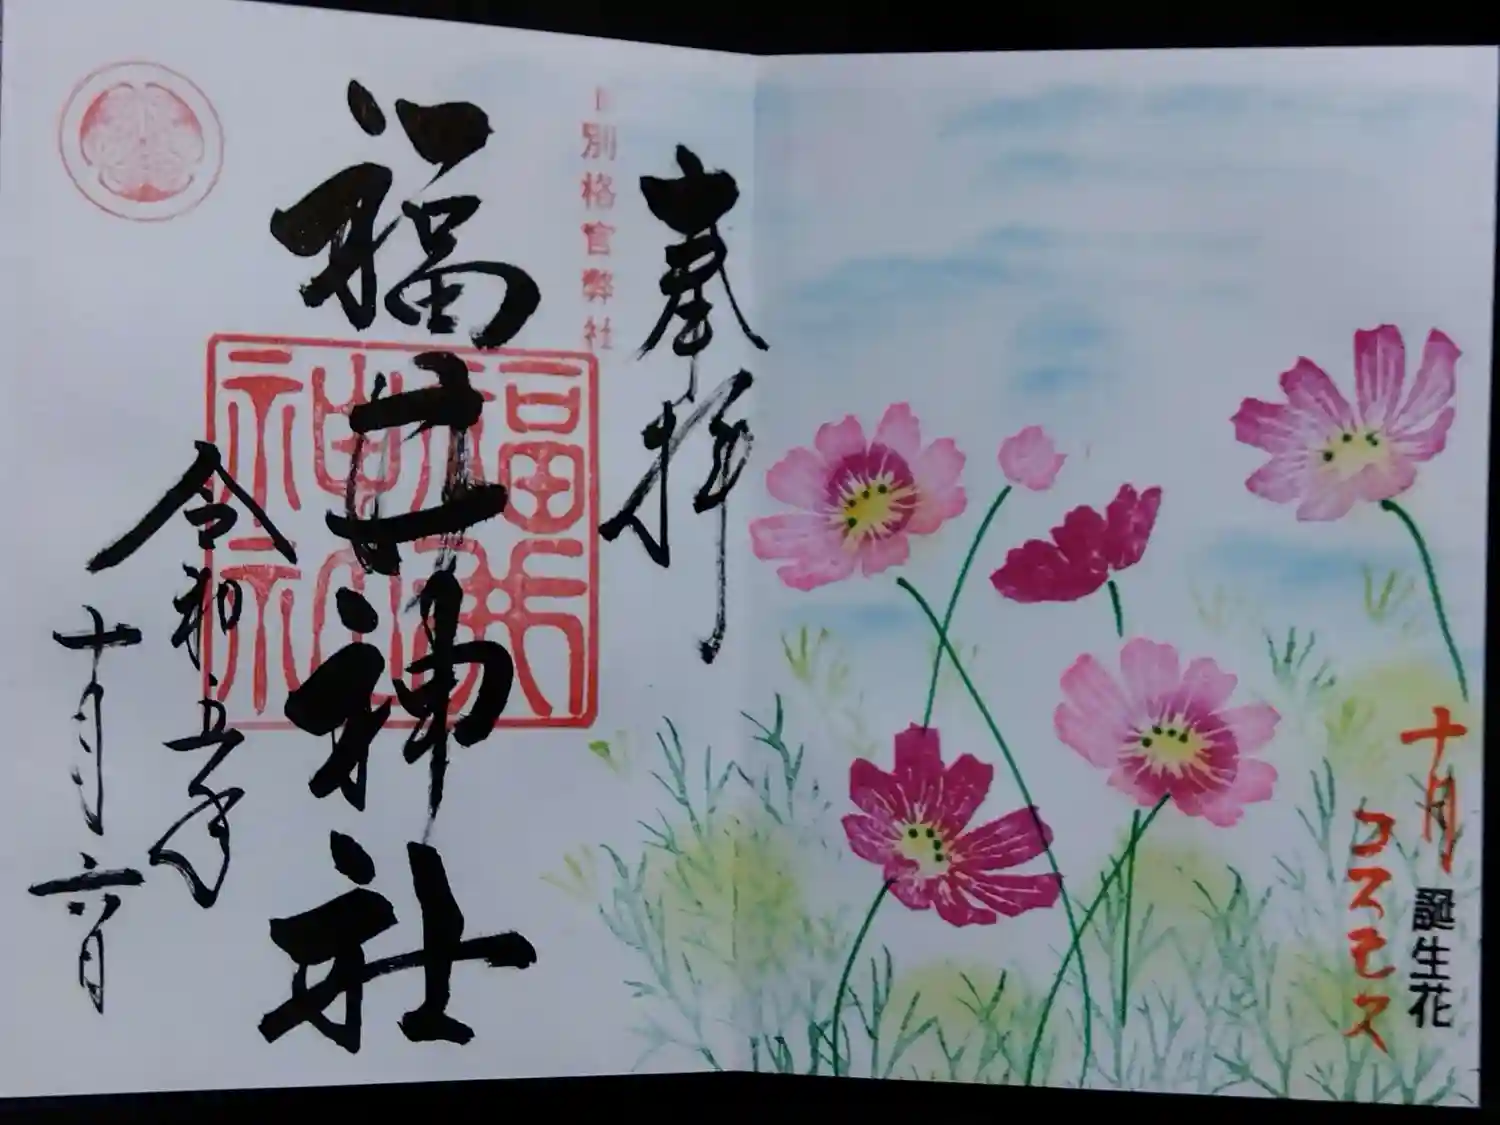 十月
誕生花
コスモス
奉拝
別格官弊社
福井神社
福井神社
令和五年
十月六日